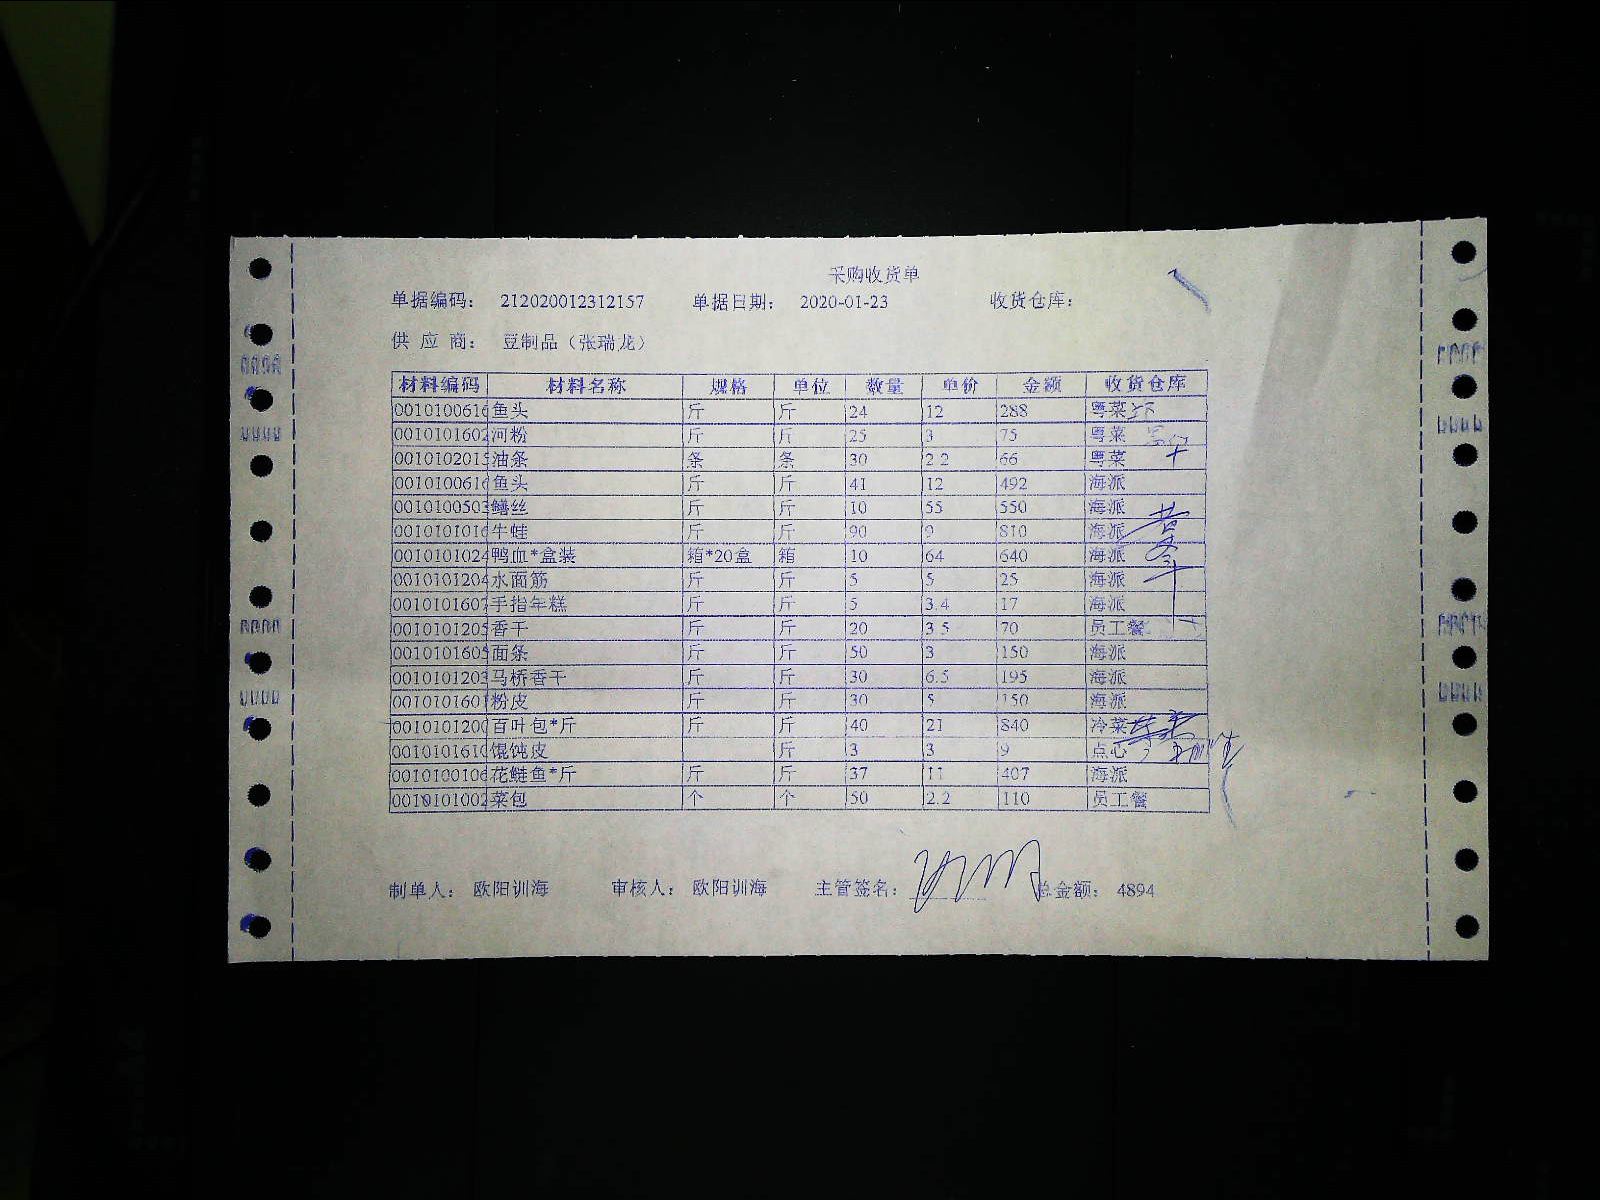 采购收货单
单据编码： 212020012312157 单据日期： 2020-01-23 收货仓库：
供 应 商： 豆制品（张瑞龙）
材料编码 材料名称 规格 单位 数量 单价 金额 收货仓库
001010061 鱼头 斤 斤 24 12 288 粤菜
001010160 河粉 斤 斤 25 3 75 粤菜
001010201 油条 条 条 30 2.2 66 粤菜
001010061 鱼头 斤 斤 41 12 492 海派
001010050 鳝丝 斤 斤 10 55 550 海派
001010101 牛蛙 斤 斤 90 9 810 海派
001010102 鸭血*盒装 箱*20盒 箱 10 64 640 海派
001010120 水面筋 斤 斤 5 5 25 海派
001010160 手指年糕 斤 斤 5 3.4 17 海派
001010120 香干 斤 斤 20 3.5 70 员工餐
001010160 面条 斤 斤 50 3 150 海派
001010120 马桥香干 斤 斤 30 6.5 195 海派
001010160 粉皮 斤 斤 30 5 150 海派
001010120 百叶包*斤 斤 斤 40 21 840 冷菜
001010161 馄饨皮 斤 3 3 9 点心
001010010 花鲢鱼*斤 斤 斤 37 11 407 海派
001010100 菜包 个 个 50 2.2 110 员工餐
制单人： 欧阳训海 审核人： 欧阳训海 主管签名： 总金额： 4894